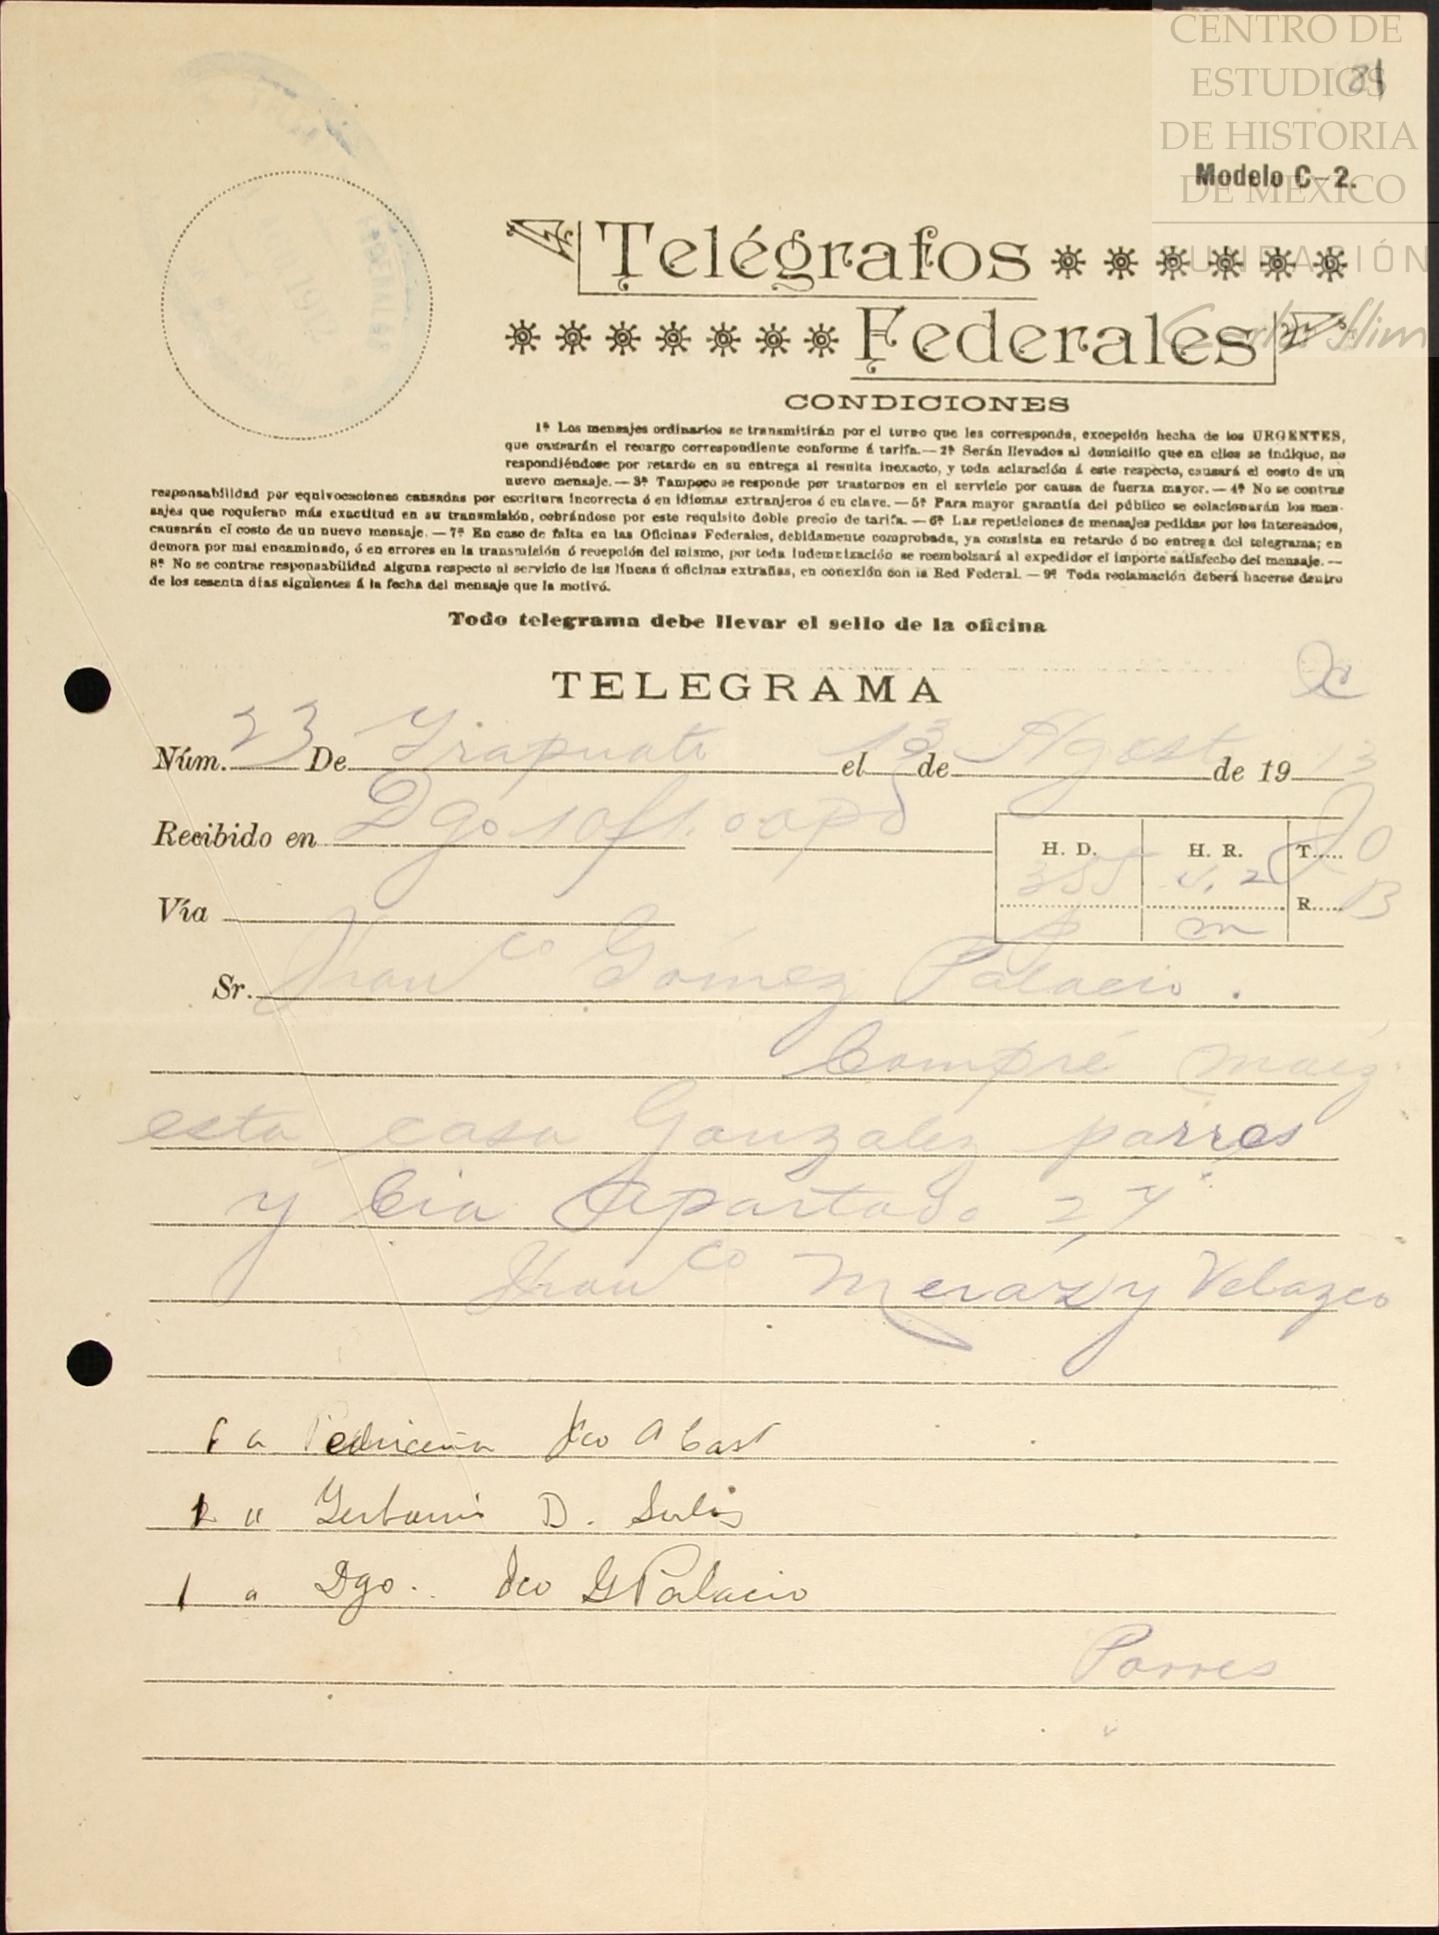 CENTRO DE
ESTUDIOS
DE HISTORIA
DE MÉXICO
FUNDACIÓN
Carlos Slim
81
Modelo C-2.
Telégrafos
Federales
CONDICIONES
1ª Los mensajes ordinarios se transmitirán por el turno que les corresponda, excepción hecha de los URGENTES,
que causarán el recargo correspondiente conforme á tarifa.— 2ª Serán llevados al domicilio que en ellos se indique, no
respondiéndose por retardo en su entrega si resulta inexacto, y toda aclaración á este respecto, causará el costo de un
nuevo mensaje. — 3ª Tampoco se responde por trastornos en el servicio por causa de fuerza mayor. — 4ª No se contrae
responsabilidad por equivocaciones causadas por escritura incorrecta ó en idiomas extranjeros ó en clave. — 5ª Para mayor garantía del público se colacionarán los men-
sajes que requieran más exactitud en su transmisión, cobrándose por este requisito doble precio de tarifa. — 6ª Las repeticiones de mensajes pedidas por los interesados,
causarán el costo de un nuevo mensaje. — 7ª En caso de falta en las Oficinas Federales, debidamente comprobada, ya consista en retardo ó no entrega del telegrama; en
demora por mal encaminado, ó en errores en la transmisión ó recepción del mismo, por toda indemnización se reembolsará al expedidor el importe satisfecho del mensaje. —
8ª No se contrae responsabilidad alguna respecto al servicio de las líneas ú oficinas extrañas, en conexión con la Red Federal. — 9ª Toda reclamación deberá hacerse dentro
de los sesenta días siguientes á la fecha del mensaje que la motivó.
Todo telegrama debe llevar el sello de la oficina
TELEGRAMA
Núm. 23 De Irapuato el 13 de Agosto de 1913
Recibido en Dgo
H. D. H. R. T.
355
R. B
p m
Vía
Sr. Franco Gómez Palacio.
Compré maiz
esta casa Gonzalez parres
y Cia Apartado 27
Franco Meraz y Velazco
a Pedriceña Fco A Cast
1 " D. Solis
1 " Dgo. Fco G Palacio
Parres